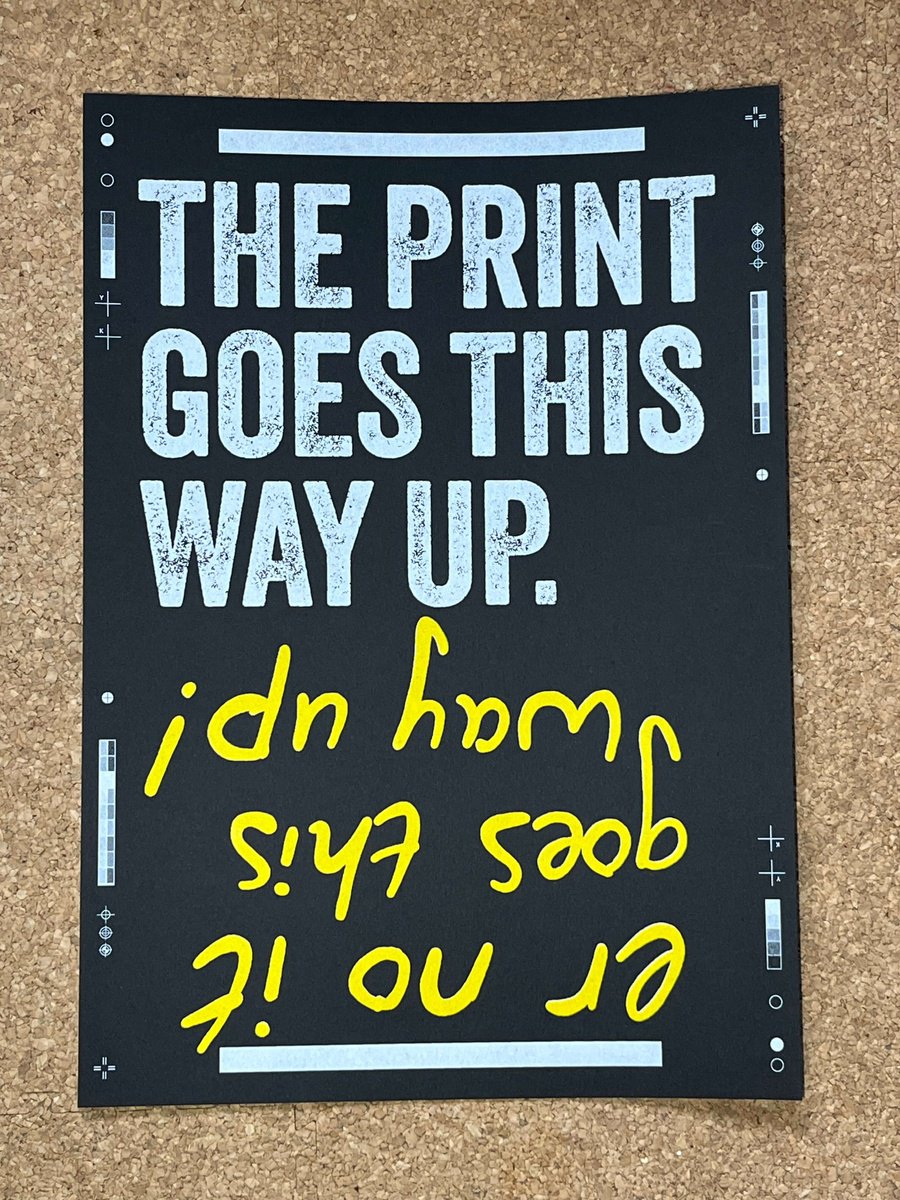 THE PRINT
GOES THIS
WAY UP.
er no it
goes this
way up!